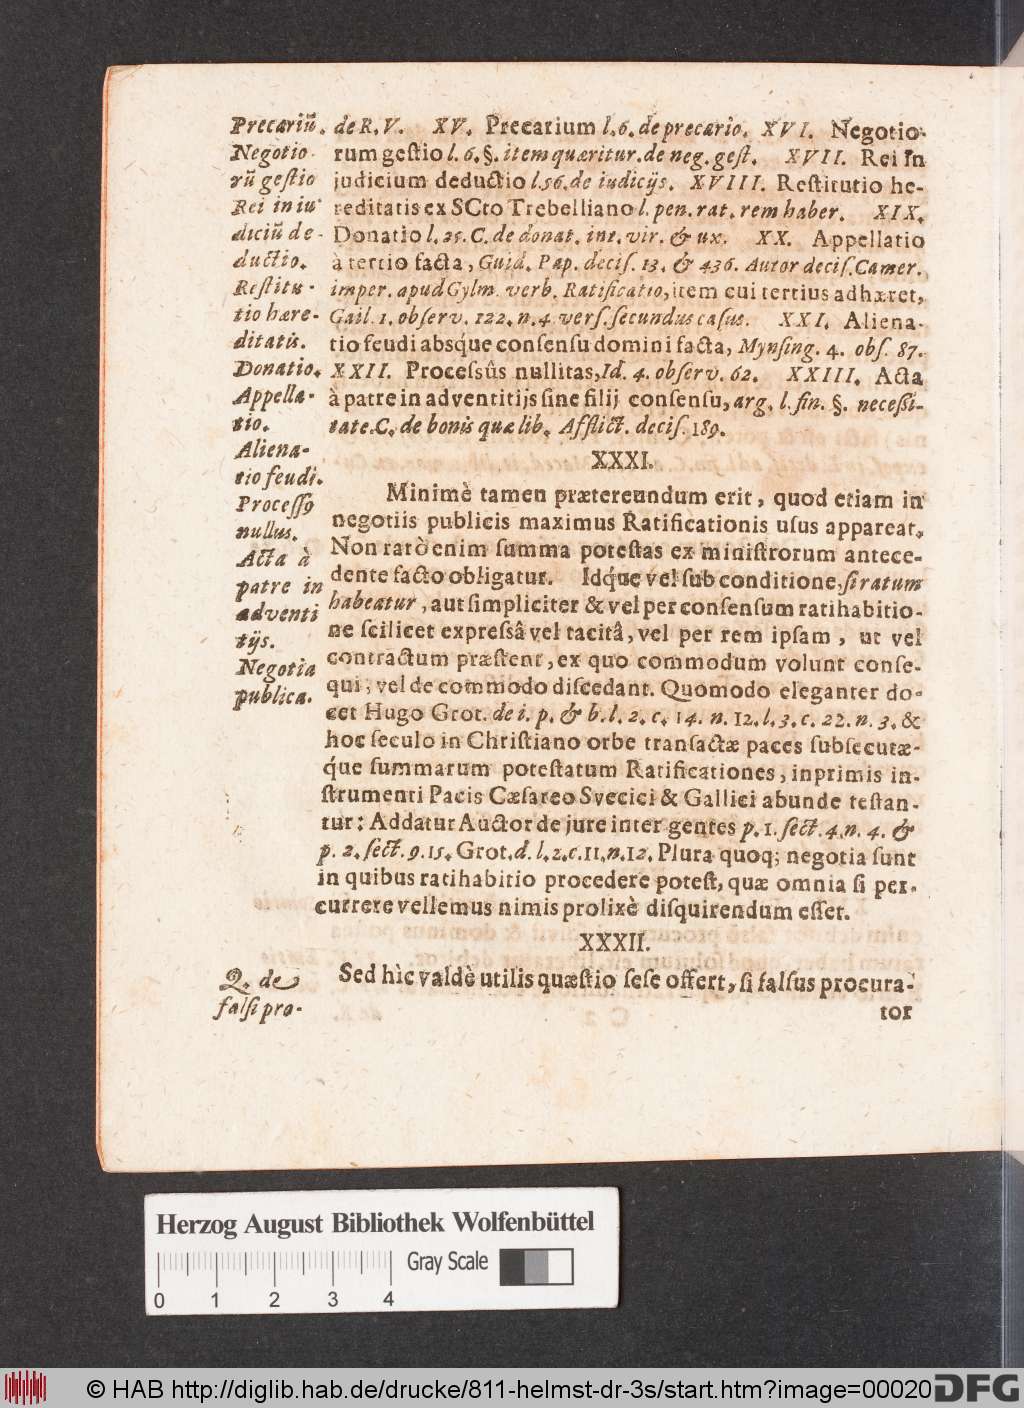 Precariũ.
Negotio-
rũ gestio
Rei in iu
diciũ de-
ductio.
Restitu-
tio hære-
ditatis.
Donatio.
Appella-
tio.
Aliena-
tio feudi.
Processꝰ
nullus.
Acta à
patre in
adventi
tijs.
Negotia
publica.
de R. V. XV. Precarium l. 6. de precario. XVI. Negotio-
rum gestio l. 6. §. item quæritur. de neg. gest. XVII. Rei in
judicium deductio l. 56. de iudicijs. XVIII. Restitutio he-
reditatis ex SCto Trebelliano l. pen. rat. rem haber. XIX.
Donatio l. 25. C. de donat. int. vir. & ux. XX. Appellatio
à tertio facta, Guid. Pap. decis. 13. & 436. Autor decis. Camer.
imper. apud Gylm. verb. Ratificatio, item cui tertius adhæret,
Gail. 1. observ. 122. n. 4. vers. secundus casus. XXI. Aliena-
tio feudi absq́ue consensu domini facta, Mynsing. 4. obs. 87.
XXII. Processûs nullitas, Id. 4. observ. 62. XXIII. Acta
à patre in adventitijs sine filij consensu, arg. l. fin. §. necessi-
tate. C. de bonis quæ lib. Afflict. decis. 189.
XXXI.
Minimè tamen prætereundum erit, quod etiam in
negotiis publicis maximus Ratificationis usus appareat.
Non rarò enim summa potestas ex ministrorum antece-
dente facto obligatur. Idq́ue vel sub conditione, si ratum
habeatur, aut simpliciter & vel per consensum ratihabitio-
ne scilicet expressâ vel tacitâ, vel per rem ipsam, ut vel
contractum præstent, ex quo commodum volunt conse-
qui, vel de commodo discedant. Quomodo eleganter do-
cet Hugo Grot. de i. p. & b. l. 2. c. 14. n. 12. l. 3. c. 22. n. 3. &
hoc seculo in Christiano orbe transactæ paces subsecutæ-
q́ue summarum potestatum Ratificationes, inprimis in-
strumenti Pacis Cæsareo Svecici & Gallici abunde testan-
tur: Addatur Auctor de jure inter gentes p. 1. sect. 4. n. 4. &
p. 2. sect. 9. 15. Grot. d. l. 2. c. 11. n. 12. Plura quoq; negotia sunt
in quibus ratihabitio procedere potest, quæ omnia si per-
currere vellemus nimis prolixè disquirendum esset.
XXXII.
Q. de
falsi pro-
Sed hìc valdè utilis quæstio sese offert, si falsus procura-
tor
Herzog August Bibliothek Wolfenbüttel
Gray Scale
0 1 2 3 4
© HAB http://diglib.hab.de/drucke/811-helmst-dr-3s/start.htm?image=00020
DFG